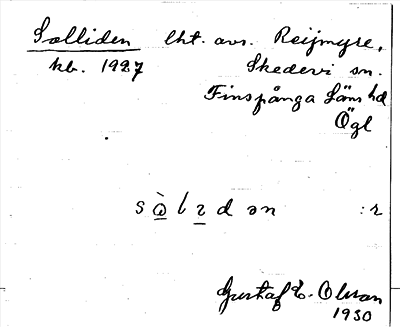 Solliden lht. avs. Reijmyre,
kb. 1927 Skedevi sn.
Finspånga Läns hd
Ögl
sò̱lɪ̱dən :r
Gustaf E. Olsson
1930